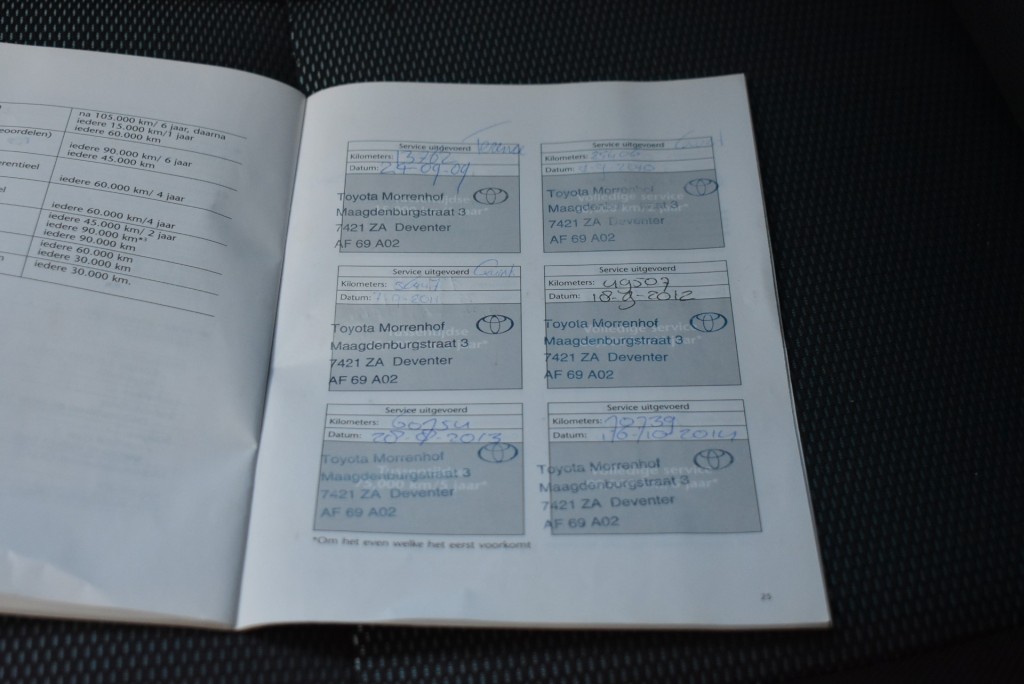 na 105.000 km/ 6 jaar, daarna
iedere 15.000 km/1 jaar
eoordelen)
iedere 60.000 km
iedere 90.000 km/ 6 jaar
iedere 45.000 km
erentieel
iedere 60.000 km/ 4 jaar
el
iedere 60.000 km/4 jaar
iedere 45.000 km/ 2 jaar
iedere 90.000 km*³
iedere 90.000 km
iedere 60.000 km
iedere 30.000 km
iedere 30.000 km.
Service uitgevoerd
Kilometers: 13702
Datum: 24-09-09.
Toyota Morrenhof
Maagdenburgstraat 3
7421 ZA Deventer
AF 69 A02
Service uitgevoerd
Kilometers:
Datum:
Toyota Morrenhof
Maagdenburgstraat 3
7421 ZA Deventer
AF 69 A02
Service uitgevoerd
Kilometers:
Datum:
Toyota Morrenhof
Maagdenburgstraat 3
7421 ZA Deventer
AF 69 A02
Service uitgevoerd
Kilometers: 49507
Datum: 18-9-2012
Toyota Morrenhof
Maagdenburgstraat 3
7421 ZA Deventer
AF 69 A02
Service uitgevoerd
Kilometers: 60754
Datum: 2013
Toyota Morrenhof
Maagdenburgstraat 3
7421 ZA Deventer
AF 69 A02
Service uitgevoerd
Kilometers: 70739
Datum: 16-10-2014
Toyota Morrenhof
Maagdenburgstraat 3
7421 ZA Deventer
AF 69 A02
*Om het even welke het eerst voorkomt
25